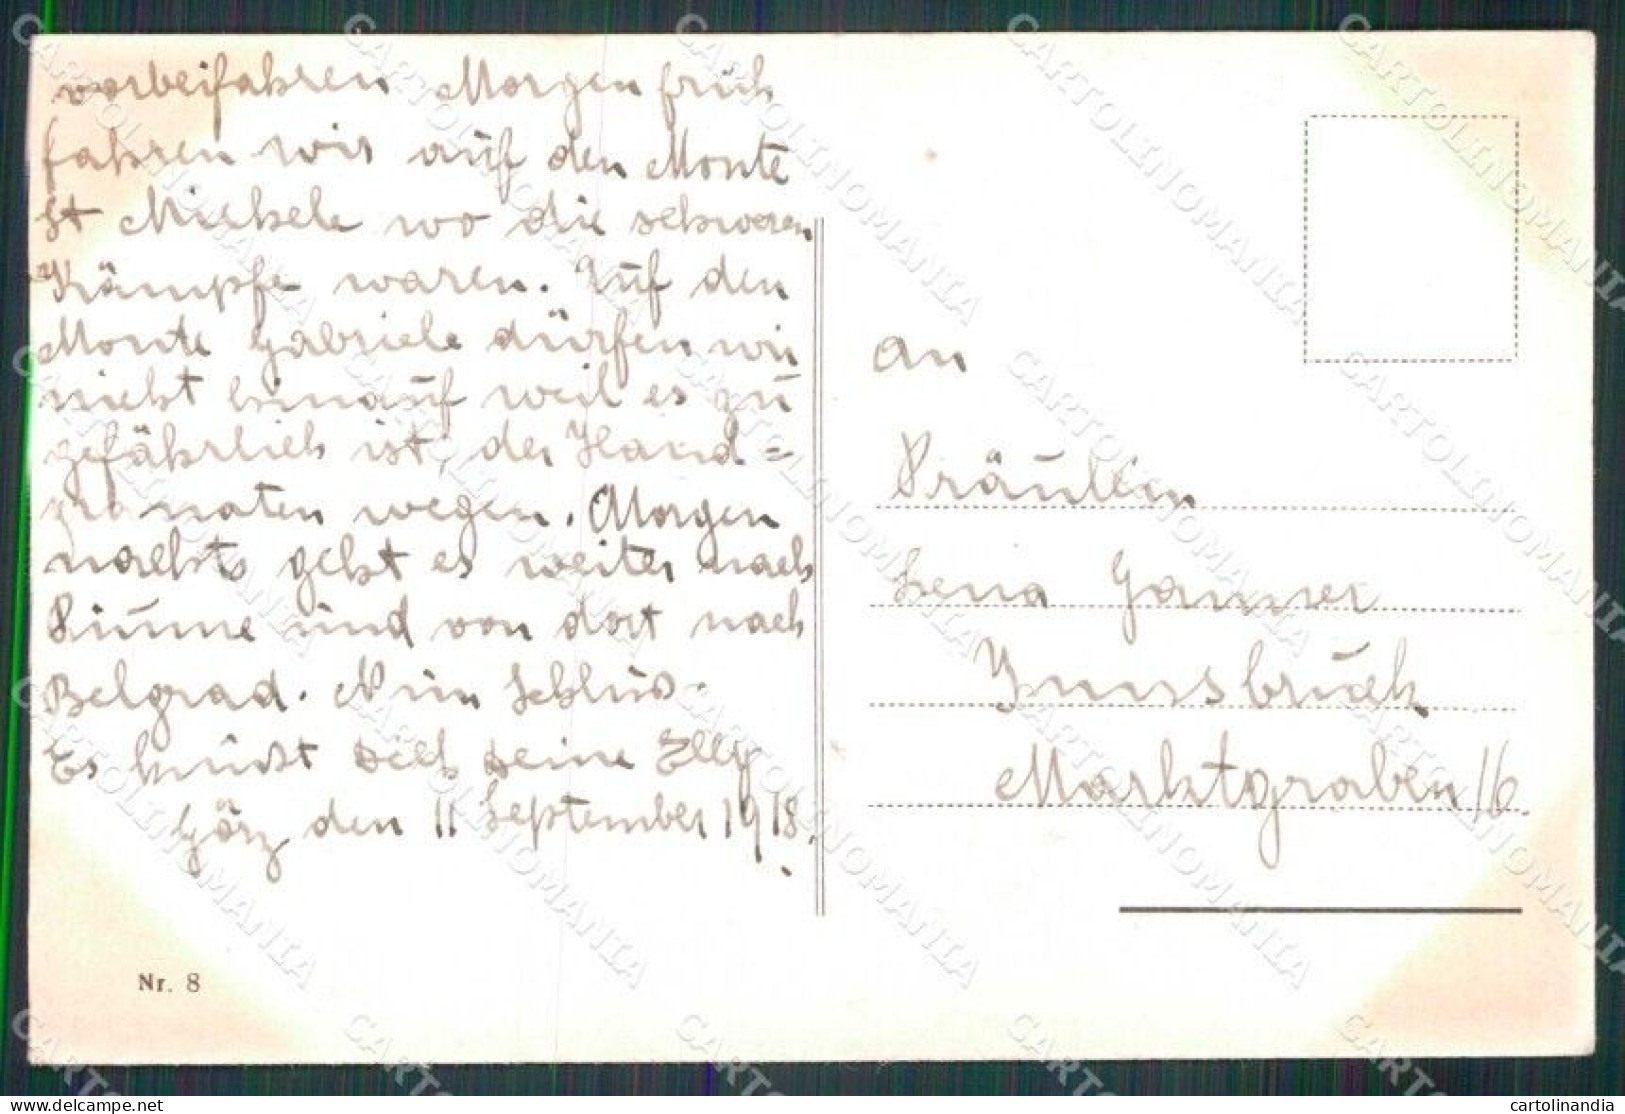 vorbeifahren Morgen früh
fahren wir auf den Monte
St Michele wo die schweren
Kämpfe waren. Auf den
Monte Gabriele dürfen wir
nicht hinauf weil es zu
gefährlich ist, der Hand=
granaten wegen. Morgen
nachts geht es weiter nach
Fiume und von dort nach
Belgrad. Nun Schluss-
Es küsst dich deine Elly
Görz den 11 September 1918.
Nr. 8
An
Fräulein
Lena Ganner
Innsbruck
Marktgraben 16
CARTOLINOMANIA
cartolinandia